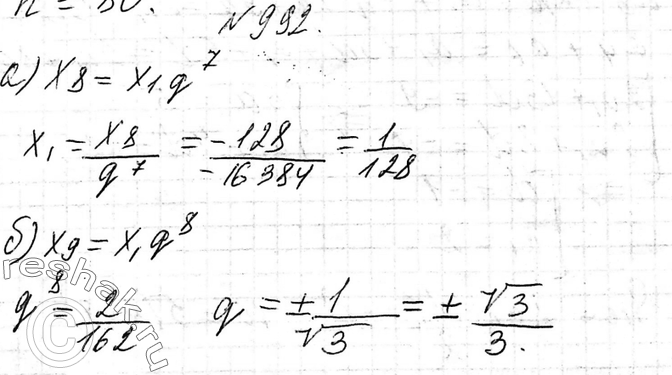 n = 30.
№ 992.
а) x₈ = x₁ q⁷
x₁ = x₈/q⁷ = -128/-16384 = 1/128
б) x₉ = x₁ q⁸
q⁸ = 2/162 q = ±1/√3 = ± √3/3.
reshak.ru
©